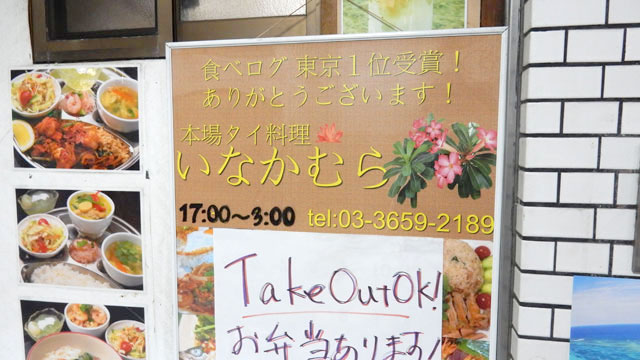 食べログ 東京1位受賞！
ありがとうございます！
本場タイ料理
いなかむら
17:00～3:00 tel:03-3659-2189
Take Out OK!
お弁当あります！